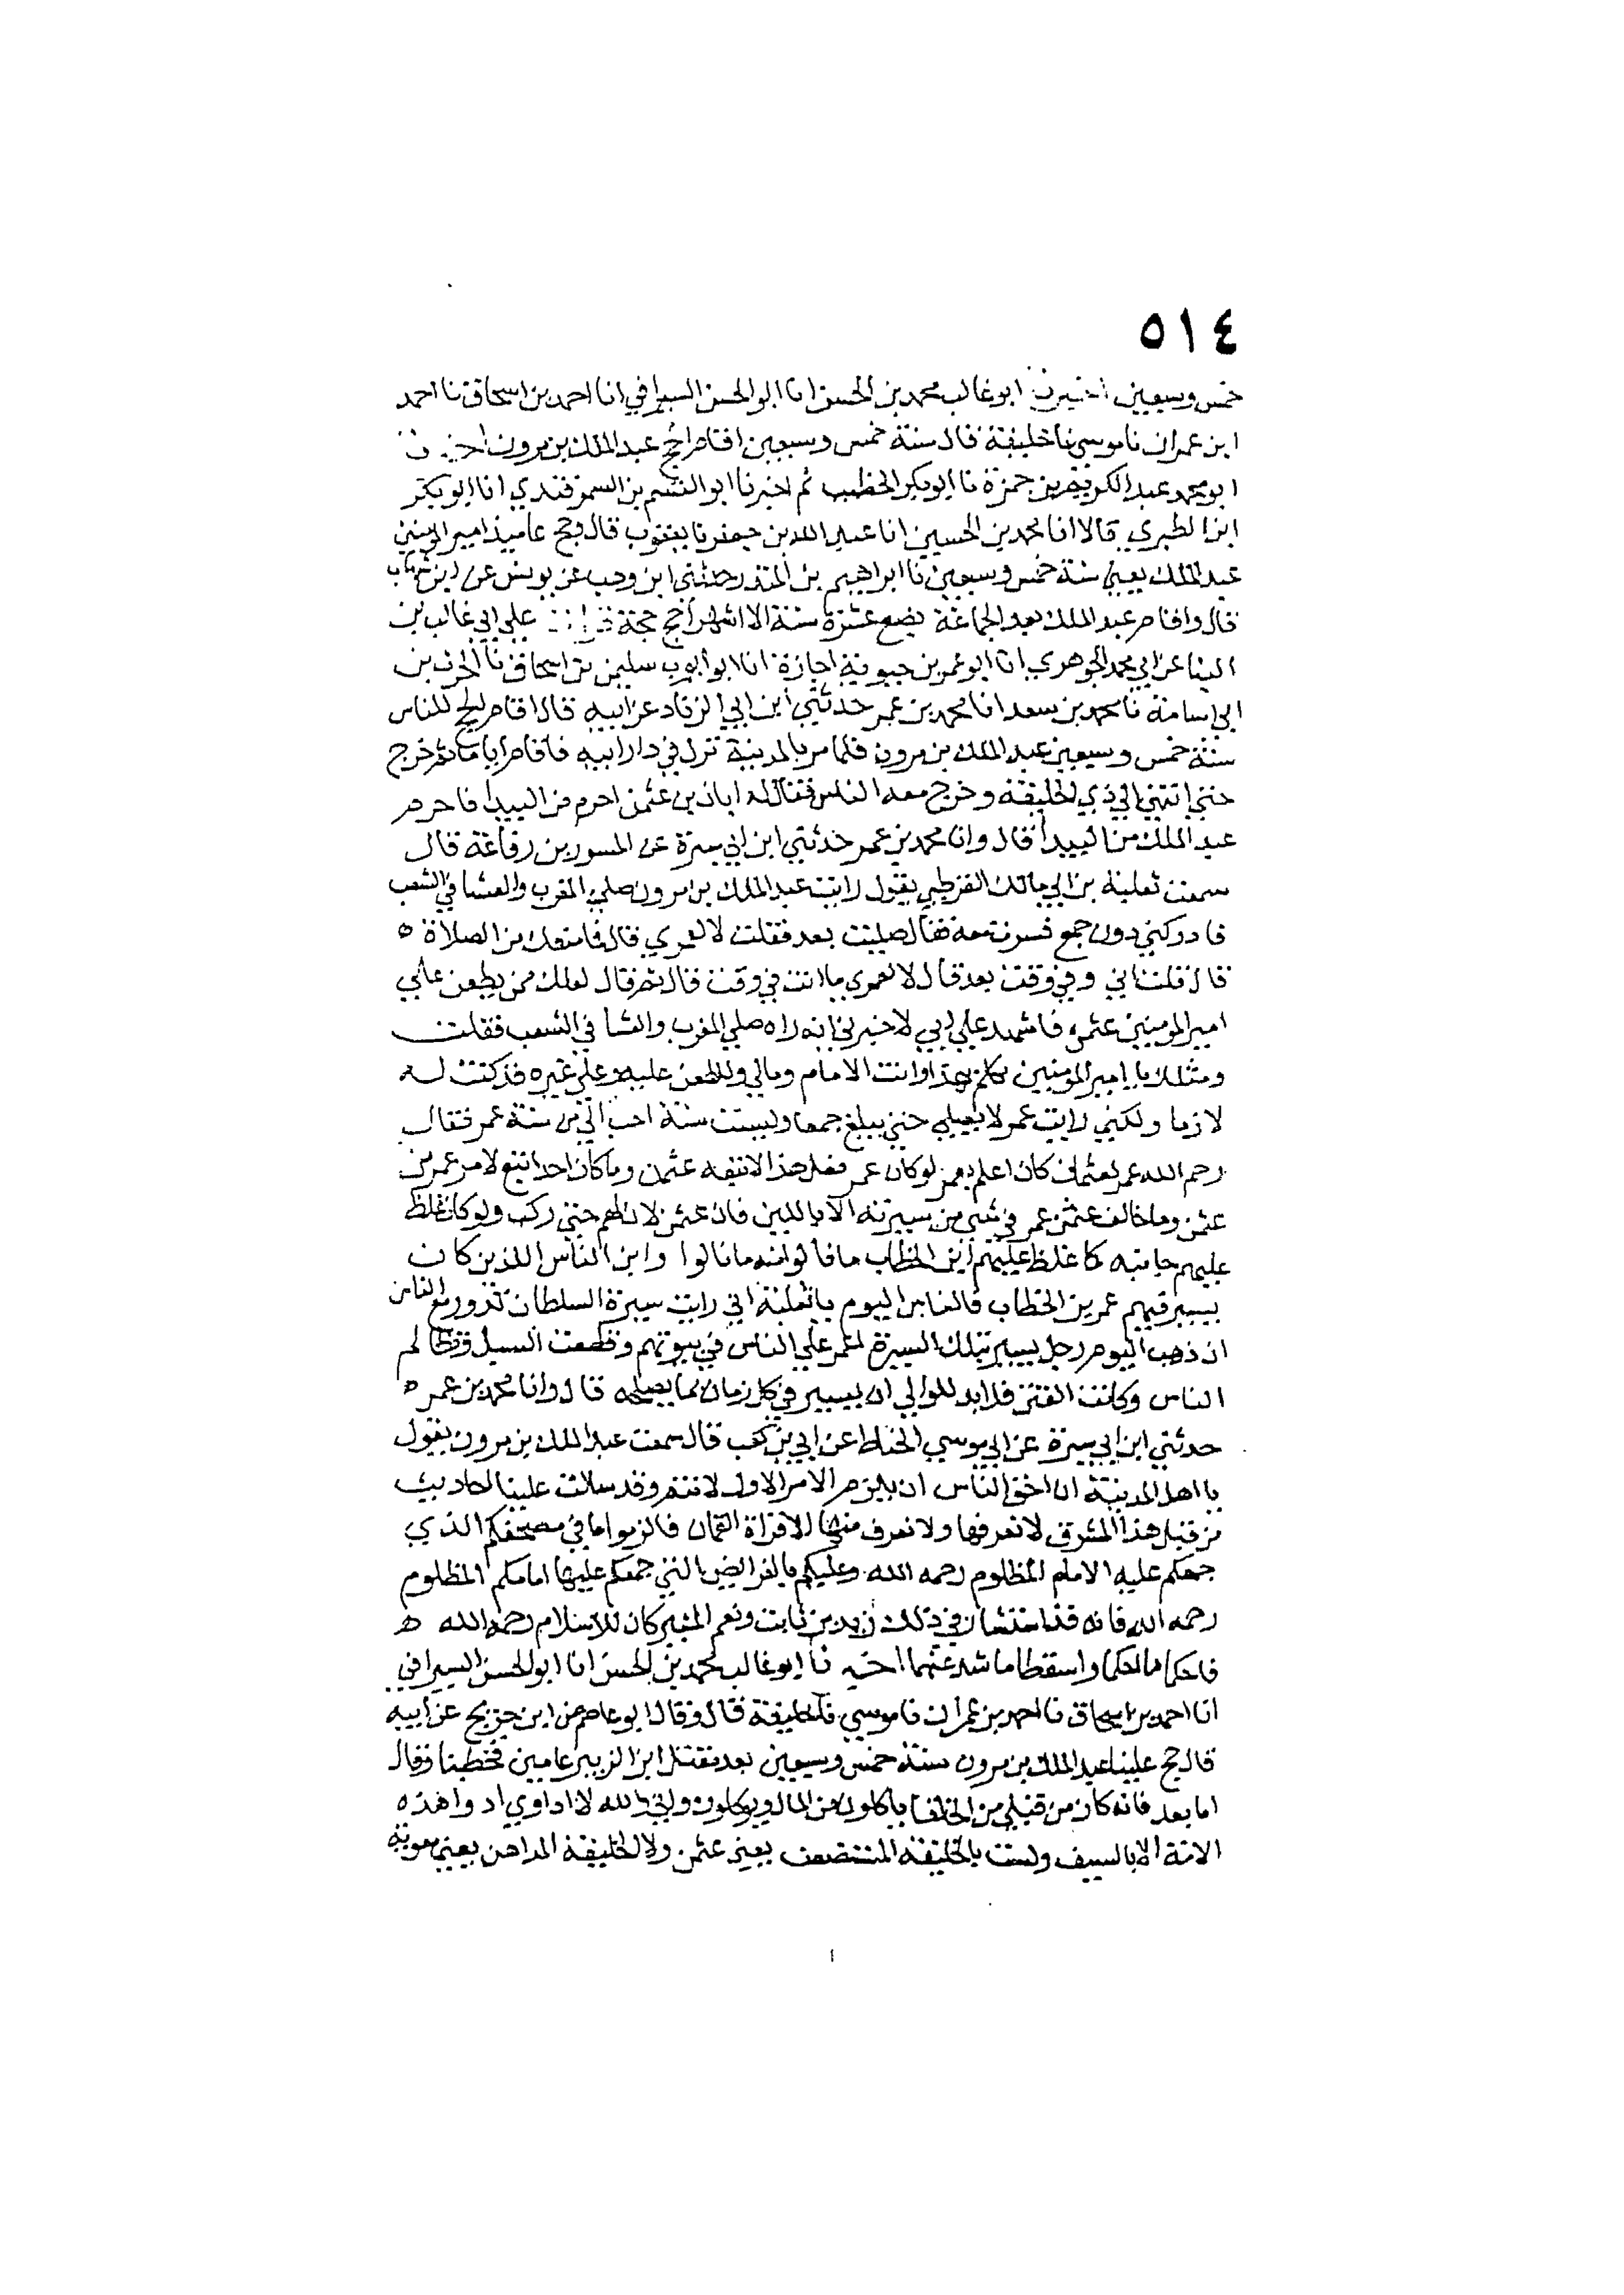 ٥١٤
خمس وسبعين اخبرنا ابو غالب محمد بن الحسن انا ابو الحسن السيرافي انا احمد بن اسحاق نا احمد
ابن عمران نا موسي نا خليفة قال سنة خمس وسبعين اقام الحج عبد الملك بن مرون اخبرنا
ابو محمد عبد الكريم بن حمزة نا ابو بكر الخطيب ثم اخبرنا ابو القسم بن السمرقندي انا ابو بكر
ابن الطبري قالا انا محمد بن الحسين انا عبد الله بن جعفر نا يعقوب قال وحج عاميذ امير المومنين
عبد الملك يعني سنة خمس وسبعين نا ابراهيم بن المنذر حدثني ابن وهب عن يونس عن ابن شهاب
قال واقام عبد الملك بعد الجماعة بضع عشرة سنة الا اشهرا حج حجة علي ابي غالب بن
البنا عن ابي محمد الجوهري انا ابو عمر بن حيوية اجازة انا ابو ايوب سليمن بن اسحاق نا الحرث بن
ابي اسامة نا محمد بن سعد انا محمد بن عمر حدثني ابن ابي الزناد عن ابيه قال اقام الحج للناس
سنة خمس وسبعين عبد الملك بن مرون فلما مر بالمدينة نزل في دار ابيه فاقام اياما ثم خرج
حتي انتهي الي ذي الحليفة وخرج معه الناس فقال له ابان بن عثمن احرم من البيدا فاحرم
عبد الملك من البيدا قال وانا محمد بن عمر حدثني ابن ابي سبرة عن المسور بن رفاعة قال
سمعت ثعلبة بن ابي مالك القرظي يقول رايت عبد الملك بن مرون صلي المغرب والعشا في الشعب
فادركني دون جمع فسرت معه فقال صليت بعد فقلت لا لعمري قال فما منعك من الصلاة ه
قال قلت اني في وقت بعد قال لا لعمري ما انت في وقت قال ثم قال لعلك ممن يطعن علي
امير المومنين عثمن فاشهد علي ابي لاخبرني انه راه صلي المغرب والعشا في الشعب فقلت
ومثلك يا امير المومنين يكلم بهذا وانت الامام ومالي وللطعن عليه وعلي غيره قد كنت له
لازما ولكني رايت عمر لا يصلي حتي يبلغ جمعا وليست سنة احب الي من سنة عمر فقال
رحم الله عمر لعثمان كان اعلم بعمر لو كان عمر فعل هذا لاتبعه عثمن وما كان احد اتبع لامر عمر من
عثمن وما خالف عثمن عمر في شي من سيرته الا باللين فان عثمن لان لهم حتي ركب ولو كان غلظ
عليهم جانبه كما غلظ عليهم ابن الخطاب ما نالوا منه ما نالوا واين الناس الذين كان
يسير فيهم عمر بن الخطاب والناس اليوم يا ثعلبة اني رايت سيرة السلطان تدور مع الناس
ان ذهب اليوم رجل يسير بتلك السيرة اغير علي الناس في بيوتهم وقطعت السبل وتظالم
الناس وكانت الفتن فلا بد للوالي ان يسير في كل زمان بما يصلحه قال وانا محمد بن عمر ه
حدثني ابن ابي سبرة عن ابي موسي الحناط عن ابي بن كعب قال سمعت عبد الملك بن مرون يقول
يا اهل المدينة ان احق الناس ان يلزم الامر الاول لانتم وقد سالت علينا احاديث
من قبل هذا المشرق لا نعرفها ولا نعرف منها الا قراة القران فالزموا ما في مصحفكم الذي
جمعكم عليه الامام المظلوم رحمه الله وعليكم بالفرايض التي جمعكم عليها امامكم المظلوم
رحمه الله فانه قد استشار في ذلك زيد بن ثابت ونعم المشير كان للاسلام رحمه الله ه
فاحكما ما احكما واسقطا ما شذ عنهما اخبرنا ابو غالب محمد بن الحسن انا ابو الحسن السيرافي
انا احمد بن اسحاق نا احمد بن عمران نا موسي نا خليفة قال وقال ابو عاصم عن ابن جريج عن ابيه
قال حج علينا عبد الملك بن مرون سنة خمس وسبعين بعد مقتل ابن الزبير عامين فخطبنا فقال
اما بعد فانه كان من قبلي من الخلفا ياكلون من المال ويوكلون واني والله لا اداوي ادوا هذه
الامة الا بالسيف ولست بالخليفة المستضعف يعني عثمن ولا الخليفة المداهن يعني معوية